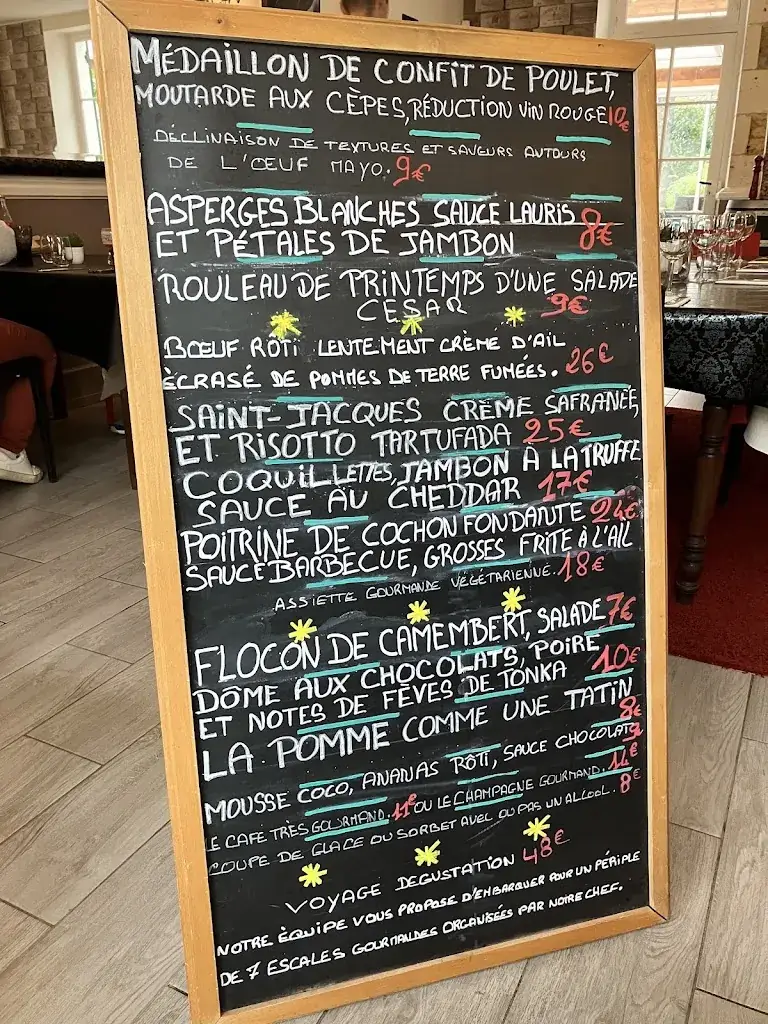 MÉDAILLON DE CONFIT DE POULET,
MOUTARDE AUX CÈPES, RÉDUCTION VIN ROUGE 10€
DÉCLINAISON DE TEXTURES ET SAVEURS AUTOURS
DE L'ŒUF MAYO. 9€
ASPERGES BLANCHES SAUCE LAURIS 8€
ET PÉTALES DE JAMBON
ROULEAU DE PRINTEMPS D'UNE SALADE
CESAR 9€
BŒUF RÔTI LENTEMENT CRÈME D'AIL
ÈCRASÉ DE POMMES DE TERRE FUMÉES. 26€
SAINT-JACQUES CRÈME SAFRANÉE,
ET RISOTTO TARTUFADA 25€
COQUILLETTES, JAMBON À LA TRUFFE
SAUCE AU CHEDDAR 17€
POITRINE DE COCHON FONDANTE 24€
SAUCE BARBECUE, GROSSES FRITE À L'AIL
ASSIETTE GOURMANDE VÉGÉTARIENNE. 18€
FLOCON DE CAMEMBERT, SALADE 7€
DÔME AUX CHOCOLATS, POIRE
ET NOTES DE FÈVES DE TONKA 10€
LA POMME COMME UNE TATIN 8€
MOUSSE COCO, ANANAS RÔTI, SAUCE CHOCOLAT
LE CAFE TRÈS GOURMAND. 11€ OU LE CHAMPAGNE GOURMAND. 14€
COUPE DE GLACE OU SORBET AVEC OU PAS UN ALCOOL. 8€
VOYAGE DEGUSTATION 48€
NOTRE ÈQUIPE VOUS PROPOSE D'EMBARQUER POUR UN PÉRIPLE
DE 7 ESCALES GOURMANDES ORGANISÉES PAR NOTRE CHEF.